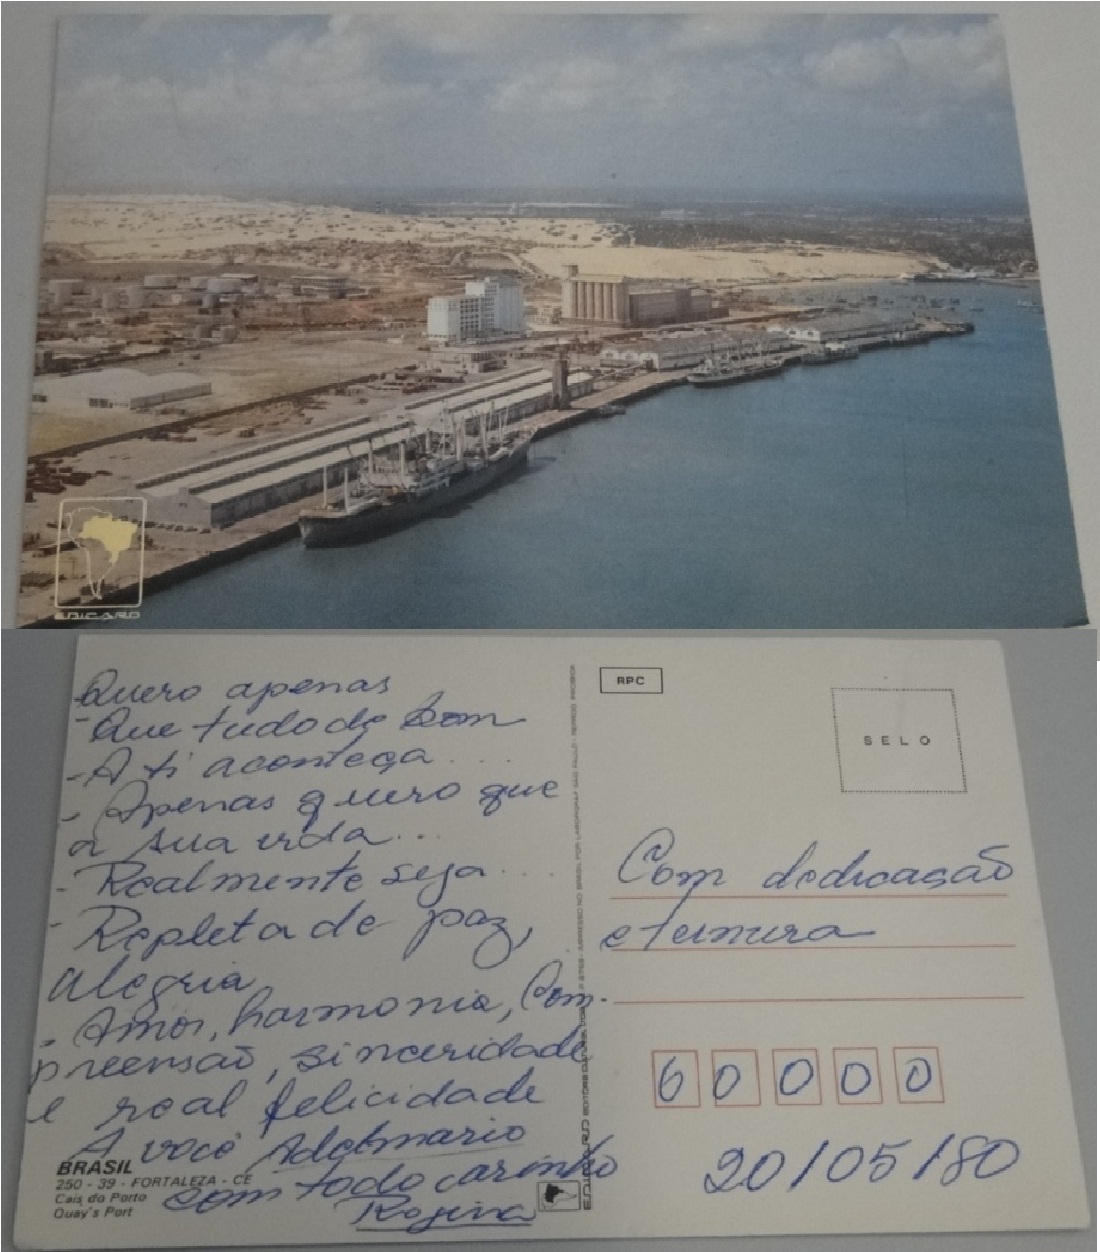 EDICARD
-Quero apenas
-Que tudo de bom
-A ti aconteça...
- Apenas quero que
a sua vida...
-Realmente seja....
-Repleta de paz,
alegria
- Amor, harmonia, Com-
preensão, sinceridade
e real felicidade
A você Adelmario
com todo carinho
Rogena
BRASIL
250 - 39 - FORTALEZA - CE
Cais do Porto
Quay's Port
RPC
SELO
Com dedicação
e ternura
60000
20/05/80